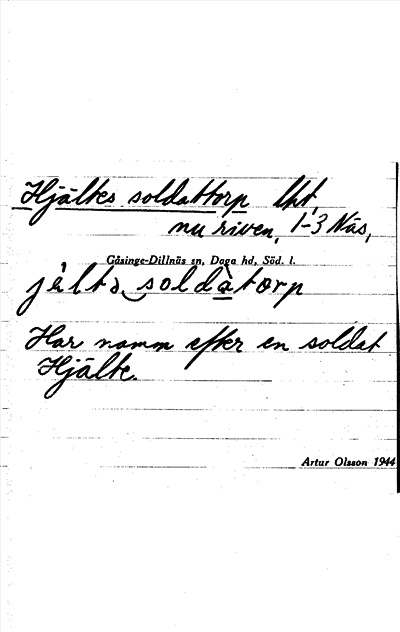 Hjältes soldattorp lht,
nu riven, 1-3 Näs,
Gåsinge-Dillnäs sn, Daga hd, Söd. l.
soldatorp
Har namn efter en soldat
Hjälte.
Artur Olsson 1944